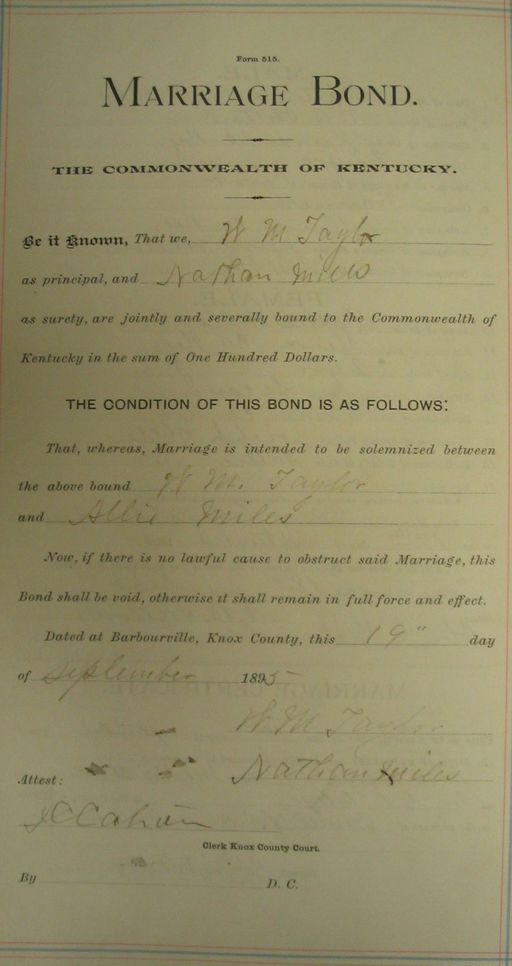 Form 515.
MARRIAGE BOND.
THE COMMONWEALTH OF KENTUCKY.
Be it Known, That we, W M Taylor
as principal, and Nathan Miles
as surety, are jointly and severally bound to the Commonwealth of
Kentucky in the sum of One Hundred Dollars.
THE CONDITION OF THIS BOND IS AS FOLLOWS:
That, whereas, Marriage is intended to be solemnized between
the above bound W M. Taylor
and Allie Miles
Now, if there is no lawful cause to obstruct said Marriage, this
Bond shall be void, otherwise it shall remain in full force and effect.
Dated at Barbourville, Knox County, this 19" day
of September 1895
W M Taylor
Attest: Nathan Miles
Clerk Knox County Court.
By D. C.